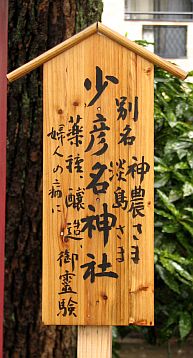 別名 神農さま
淡島さま
少彦名神社
薬種、醸造 御霊験
婦人の病に